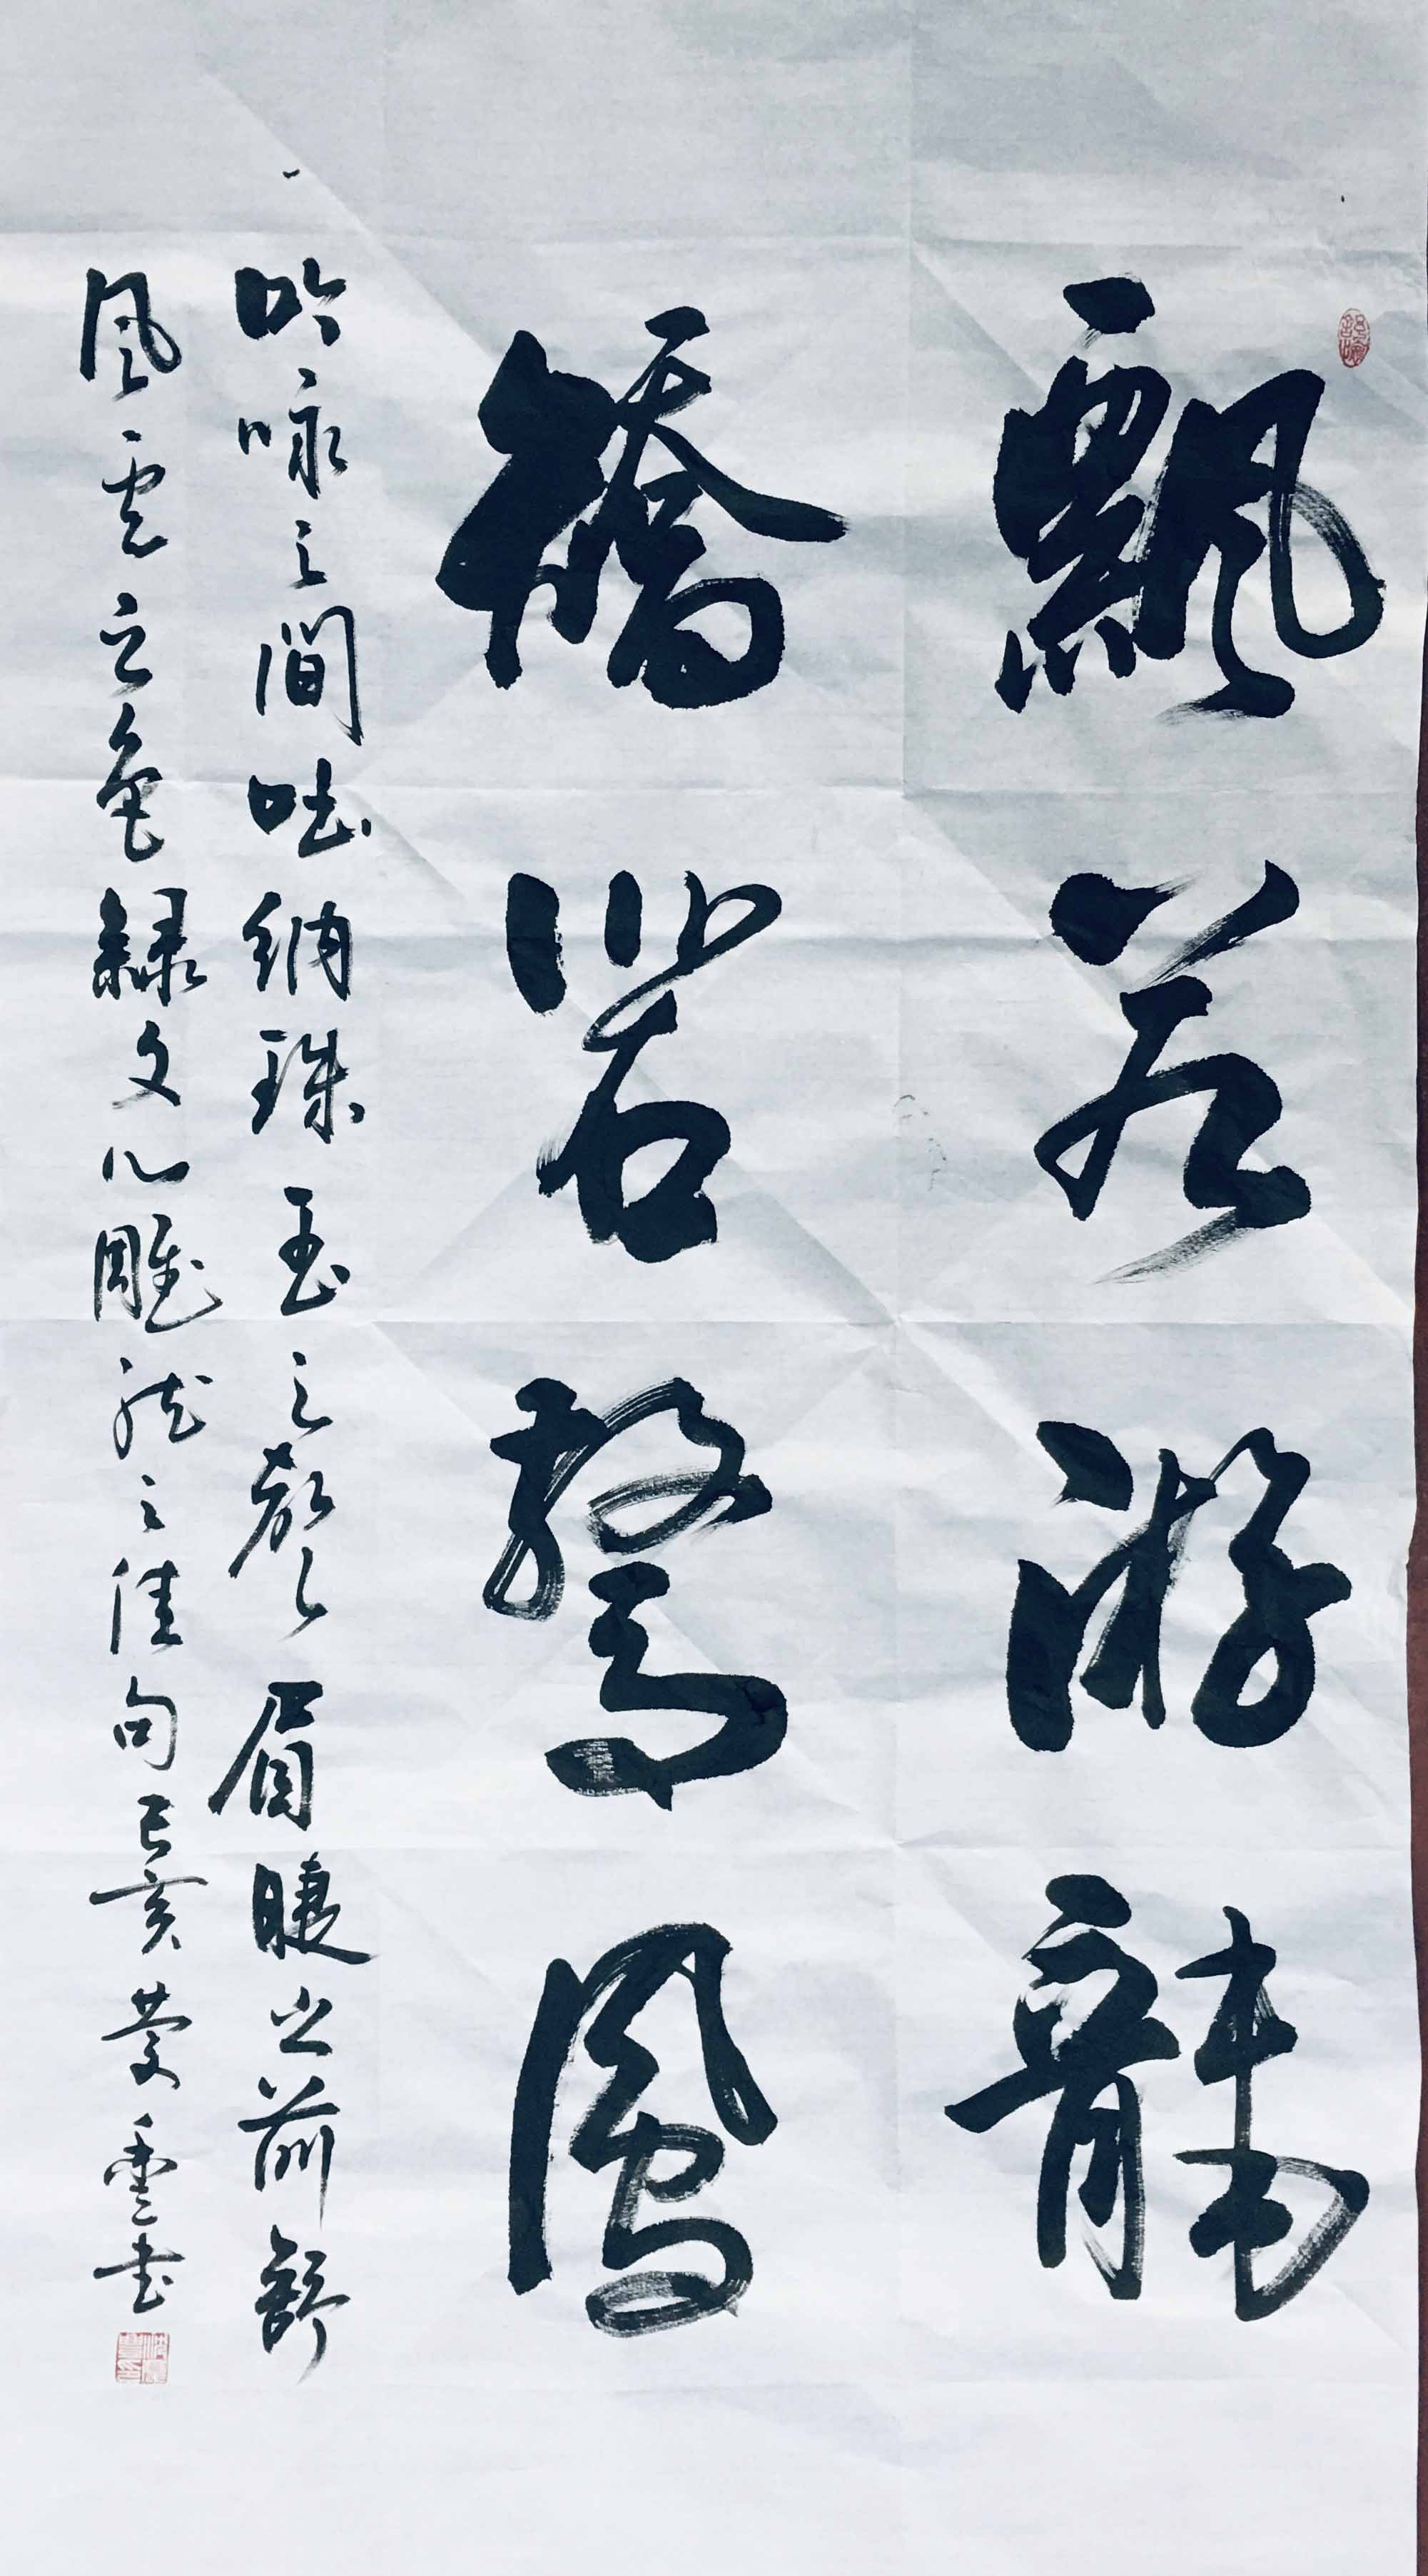 飄若游龍
矯若驚鳳
吟咏之間吐納珠玉之聲眉睫之前舒
風雲之色錄文心雕龍之佳句己亥慶雲书